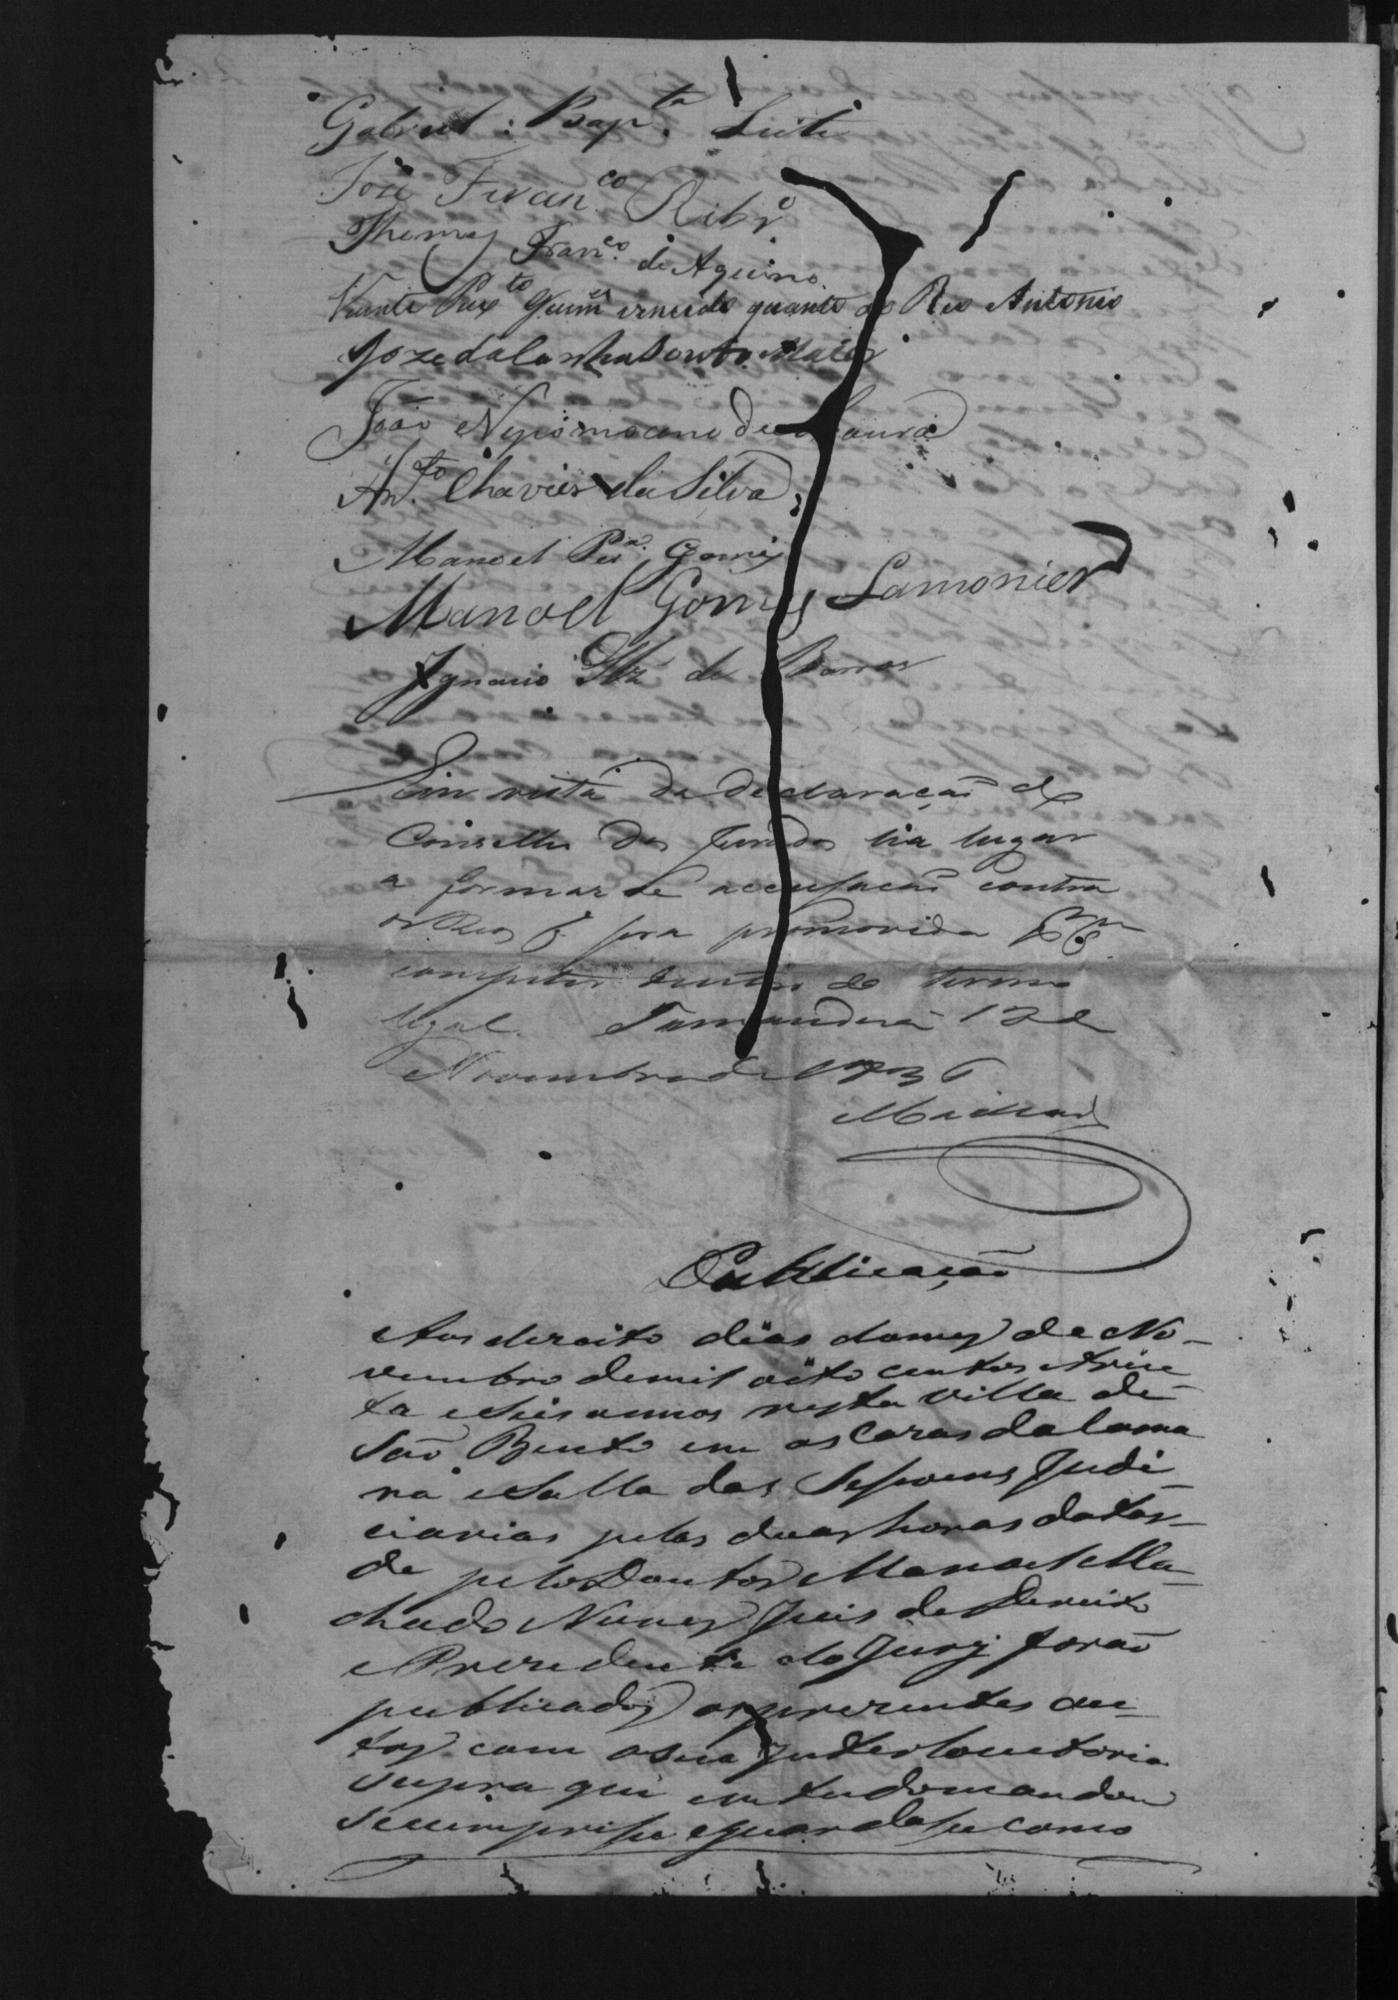 Gabriel Bap.ta Leite
José Fran.co Ribr.o
Thomas Fran.co de Aquino
Vicente vencido quanto ao Reo Antonio
Joze da Cunha Souto Maior
João Nepomoceno de Moura
An.to Chavier da Silva
Manoel Per.a Gomes
Manoel Gomes Lamonier
Ignacio Glz de Barros
Em vista da declaração do
Conselho dos Jurados ha lugar
a formar se accusação contra
os Reos q. sera promovida
competente dentro do termo
legal. Tamanduá 18 de
Novembro de 1836
Machado
Publicação
Aos dezoito dias do mez de No-
vembro de mil oito centos e trin
ta e Seis annos nesta Villa de
São Bento em as Cazas da Cama
ra e Salla das Sessoens Judi-
ciarias pelas duas horas da tar-
de pelo Doutor Manoel Ma-
chado Nunes Juis de Direito
e Prezidente do Jury forão
publicados os prezentes au-
tos com a Sua Interloucutoria
Supra que em tudo mandou
Se cumprisse e guardasse como